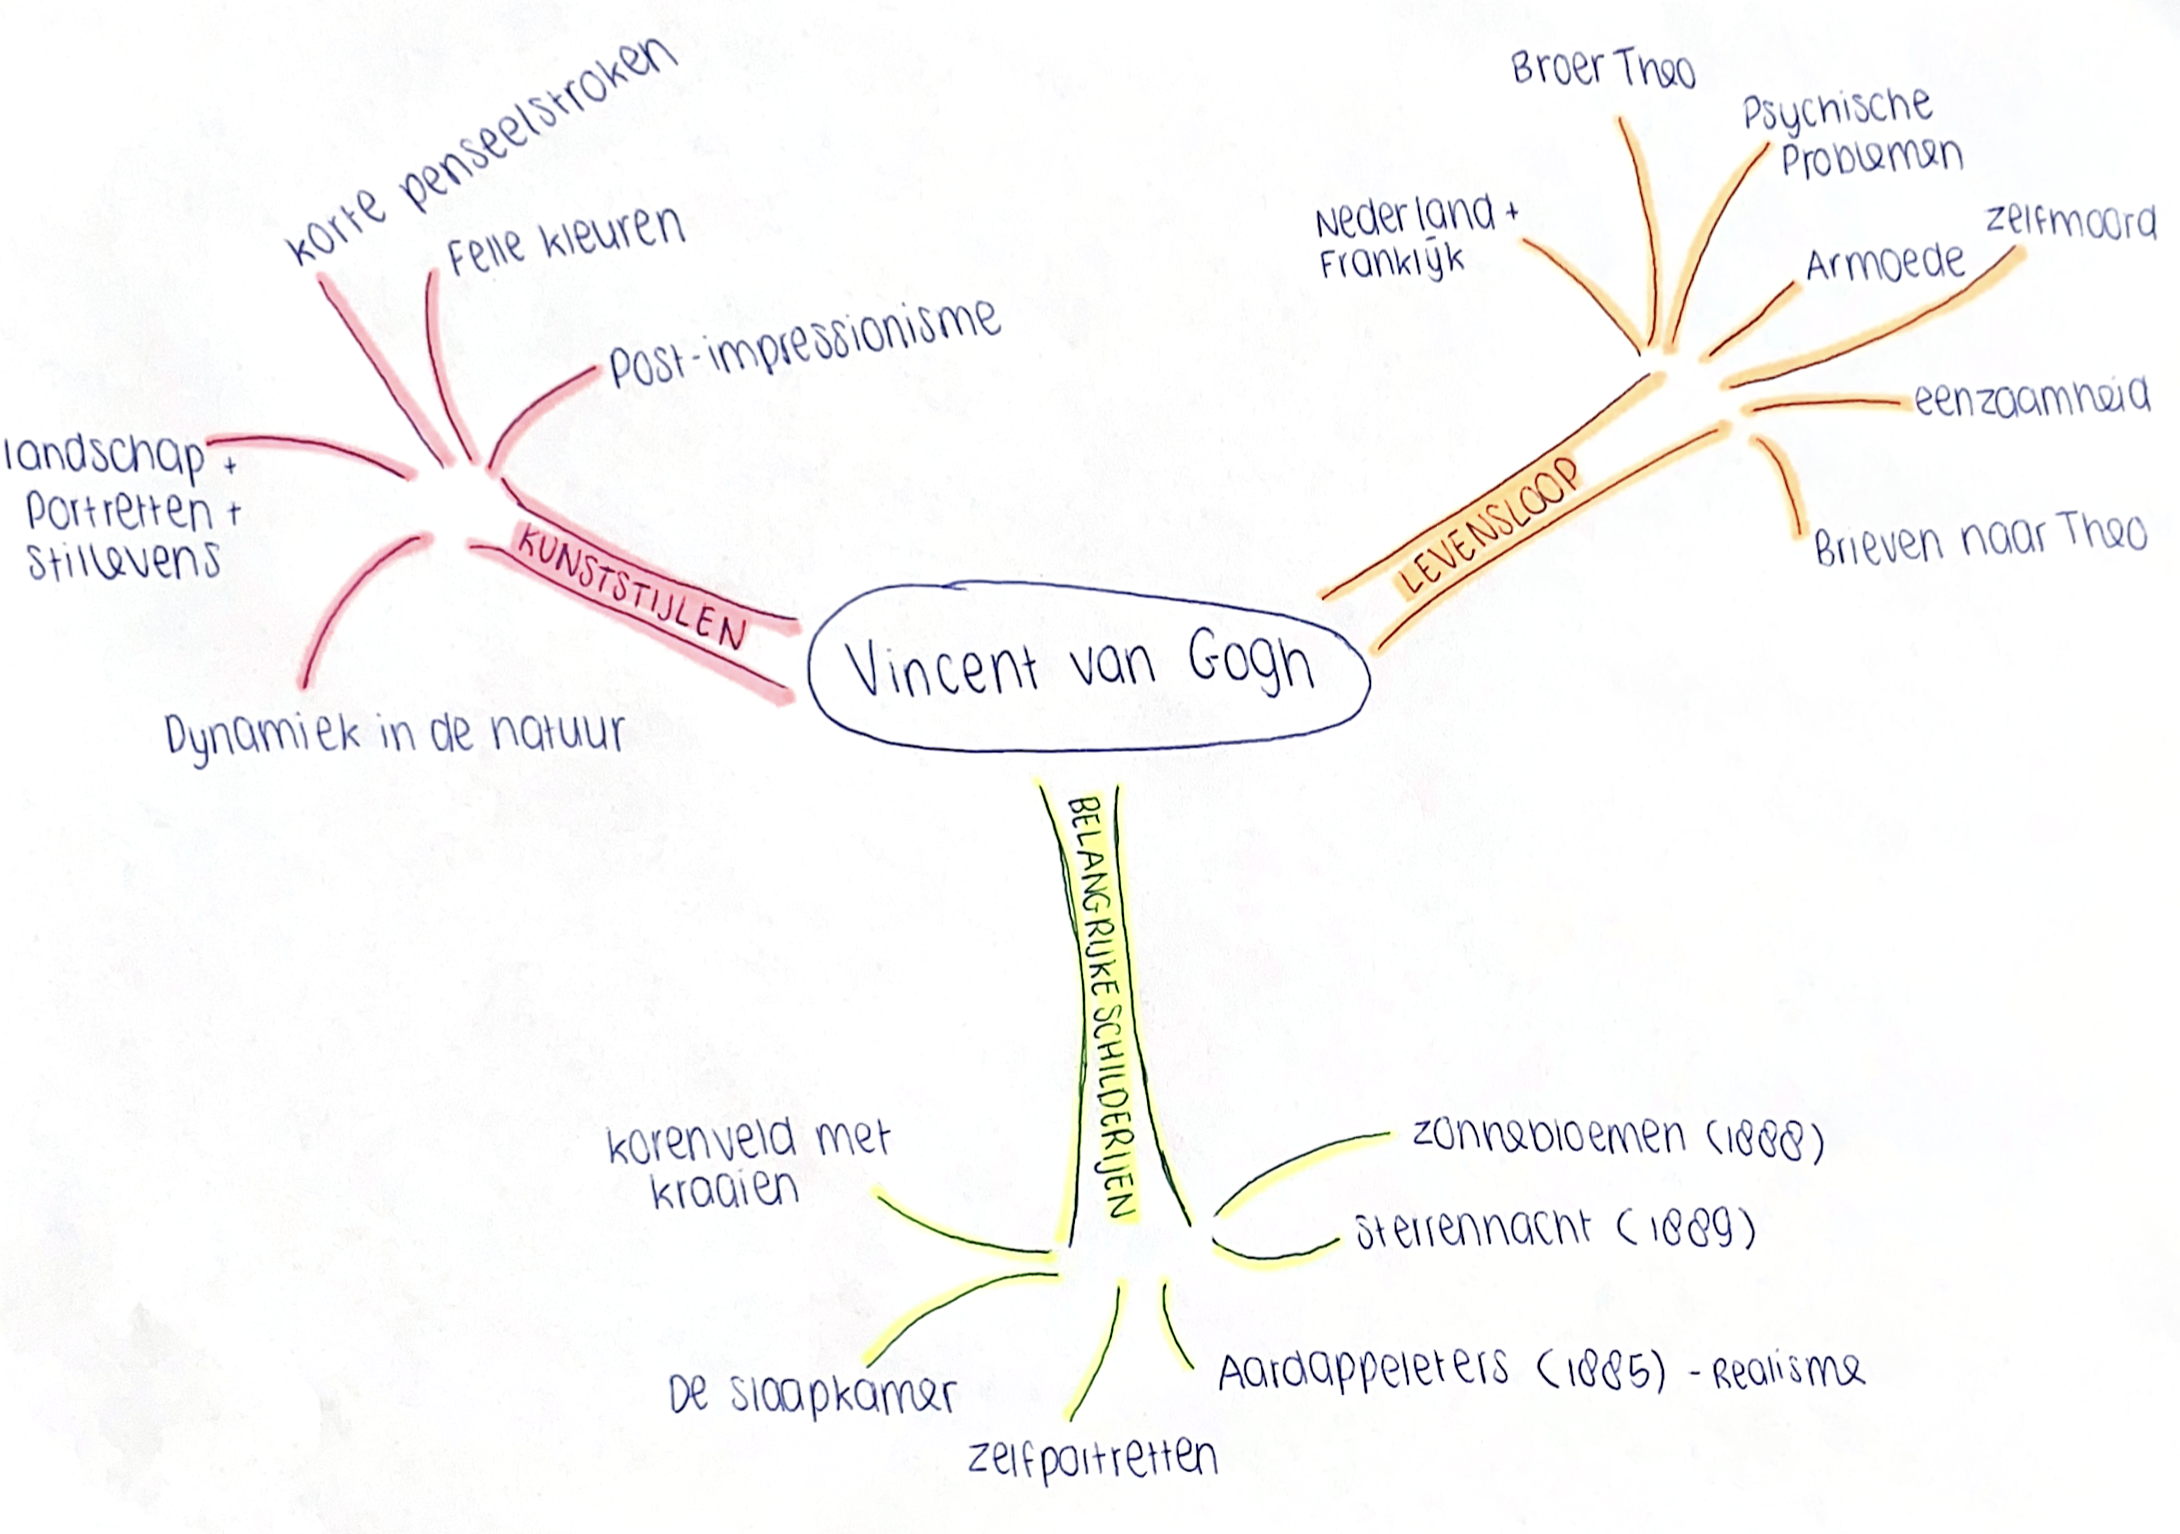 Vincent van Gogh
KUNSTSTIJLEN
korte penseelstroken
Felle kleuren
Post-impressionisme
landschap +
Portretten +
Stillevens
Dynamiek in de natuur
LEVENSLOOP
Nederland +
Franklijk
Broer Theo
Psychische
Problemen
Armoede
zelfmoord
eenzaamheid
Brieven naar Theo
BELANGRIJKE SCHILDERIJEN
korenveld met
kraaien
De slaapkamer
zelfportretten
Aardappeleters (1885) - Realisme
Sterrennacht (1889)
zonnebloemen (1888)